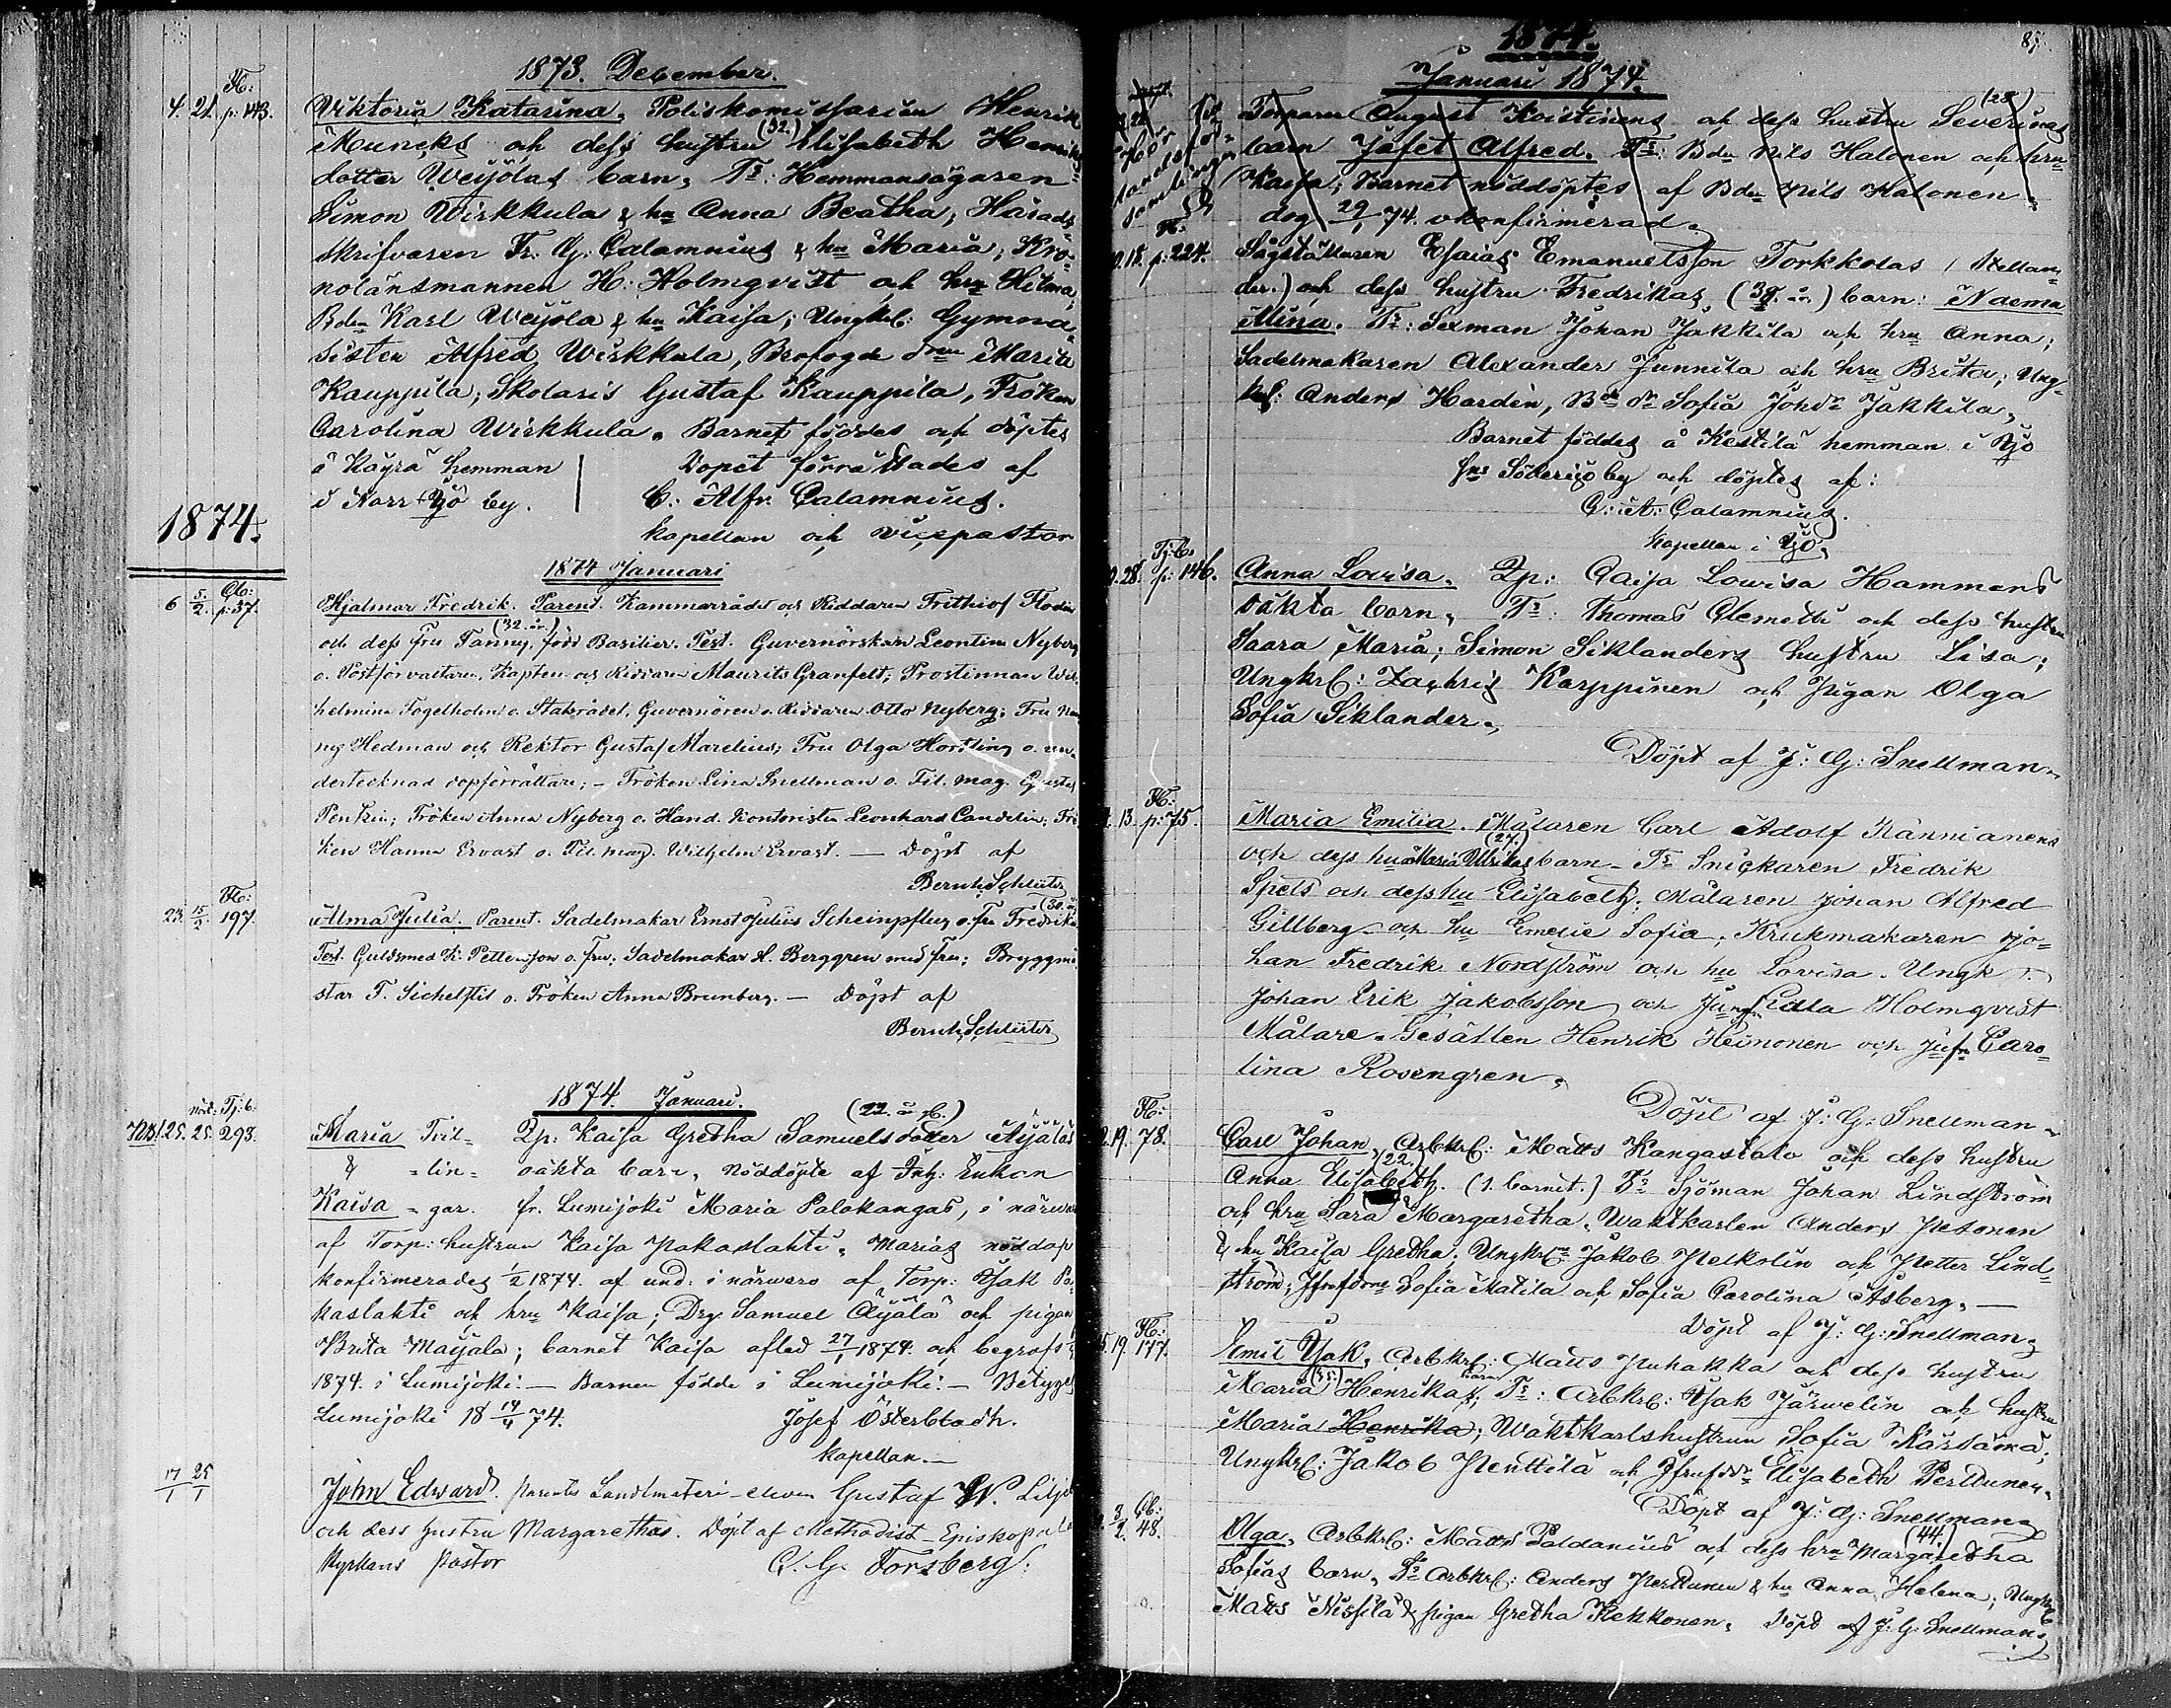 1873. December.
H:
4. 21. p: 143. Viktoria Katarina, Poliskomissarien Henrik
Muncks och dess hustru (32.) Elisabeth Henriks
dotter Weijolas barn, Ts: Hemmansägaren
Simon Wirkkula & hu Anna Beatha; Härads
skrifvaren Fr. G: Calamnius & hu Maria; Kro-
nolänsmannen H: Holmqvist och hru Hilma;
Bdn Karl Weijola & hu Kaisa; Ungkrl: Gymna-
sisten Alfred Wirkkula, Maria
Kauppila; Skolaris Gustaf Kauppila, Fröken
Carolina Wirkkula. Barnet föddes och döptes
å Käyrä hemman Dopet förrättades af
i Norr Ijo by. C: Alfr. Calamnius.
kapellan och vicepastor
1874.
1874 Januari
6 5/2. p: 37. Hjalmar Fredrik. Parent. Kammarrådet och Riddaren Frithiof Flodin
och dess fru Fanny, (32. år) född Basilier. Test. Guvernörskan Leontine Nyberg
o. Postförvaltaren, Kapten och Riddaren Maurits Granfelt; Prostinnan Wil-
helmina Fogelholm o. Statsrådet, Guvernören o. Riddaren Otto Nyberg; Fru
Hedman och Rektor Gustaf Marelius; Fru Olga Horsling o. un-
dertecknad dopförrättare; – Fröken Lina Snellman o. Fil. mag. Gustaf
Pentzin; Fröken Anna Nyberg o. Hand. Kontoristen Leonhard Candelin; Frö
ken Hanna Ervast o. Fil. mag. Wilhelm Ervast. — Döpt af
Bernh. Schlüter
23. 15/2 197. Alma Julia. Parent. Sadelmakar Ernst Julius Scheinpflug o. fru Fredrika (30. år)
Test. Guldsmed K. Pettersson o. fru; Sadelmakar A. Berggren med fru; Bryggmä
star F. Sichelstil o. Fröken Anna Brunberg. — Döpt af
Bernh. Schlüter
1874. Januari.
nöd: Tj: b.
NB! 25. 25. 293. Maria Tvil- Qp: Kaisa Gretha Samuelsdotter (22. år g.) Äijäläs
& =lin= oäkta barn, nöddöpte af Enkan
Kaisa =gar. fr. Lumijoki Maria Palokangas, i närvaro
af Torp: hustrun Kaisa Pakaslahti, Marias nöddop
konfirmerades 1/2 1874. af und: i närvaro af Torp: Isak Pa-
kaslahti och hru Kaisa; Drg: Samuel Äijälä och pigan
Brita Maijala; barnet Kaisa afled 27/1 1874. och begrofs
1874. i Lumijoki. — Barnen födde i Lumijoki. — Betygel
Lumijoki 18 14/4 74. Josef Österbladh.
kapellan. —
17/1 25/1 John Edward. Parentes Landtmäteri-eleven Gustaf W. Lilje
och dess hustru Margarethas. Döpt af Methodist-Episkopala
kyrkans Pastor G. G. Forsberg.
87.
1874.
Januari 1874.
Torparen August Koistinens och dess hustru Severinas (28)
barn Jafet Alfred. Ts: Bdn Nils Halonen och hru
Kaisa, Barnet nöddöptes af Bdn Nils Halonen,
dog 29/1 74. okonfirmerad.
H:
15. p: 224. Esaias Emanuelsson Torkkolas
och dess hustru Fredrikas, (39. år) barn: Naema
Mina. Ts: Sexman Johan Jakkila och hru Anna;
Sadelmakaren Alexander Junnila och hru Brita; Ung-
krl: Anders Hardin, Sofia Johdr Jakkila,
Barnet föddes å Kestilä hemman i Ijo
sns Söderijo by och döptes af:
C: A: Calamnius.
Kapellan i Ijo,
Tj: b.
28. p: 146. Anna Lovisa. Qp: Caisa Lovisa Hammens
oäkta barn, Ts: Thomas Clemetti och dess hustru
Saara Maria; Simon Siklanders hustru Lisa;
Ungkrl: Zachris Karppinen och Pigan Olga
Sofia Siklander.
Döpt af J: G: Snellman.
H:
13. p: 75. Maria Emilia. Målaren Carl Adolf Känniänens
och dess hu Maria Ulrikas (27.) barn. Ts Snickaren Fredrik
Spets och dess hu Elisabeth; Målaren Johan Alfred
Gillberg och hu Emelie Sofia; Krukmakaren Jo-
han Fredrik Nordström och hu Lovisa. Ungk
Johan Erik Jakobsson och Jungfr Edla Holmqvist
Målare-Gesällen Henrik Heinonen och Jufr Caro-
lina Rosengren.
Döpt af J: G: Snellman.
H:
19. 78. Carl Johan, Arbkrl: Matts Kangastalo och dess hustru
Anna Elisabeth. (22.) (1. barnet.) Ts Sjöman Johan Lindström
och hru Sara Margaretha, Waktkarlen Anders Pesonen
& hu Kaisa Gretha, Ungkrl: Jakob Pelkolin och Petter Lind-
ström, Sofia Matila och Sofia Carolina Åsberg. —
Döpt af J: G: Snellman.
H:
19. 177. Emil Isak, Arbkrl: Matts Puhakka och dess hustru
Maria (35) Henrikas barn; Ts: Arbkrl: Isak Järwelin och hustru
Maria Henrika; Waktkarlshustrun Sofia Kärsämä;
Ungkrl: Jakob Penttilä och Elisabeth Perttunen.
Döpt af J: G: Snellman
3/2. 48. Olga, Arbkrl: Matts Paldanius och dess hru Margaretha (44.)
Sofias barn, Ts Arbkrl: Anders Perttunen & hu Anna Helena; Ungkrl
Matts Nissilä & pigan Gretha Kekkonen. Döpt af J: G: Snellman